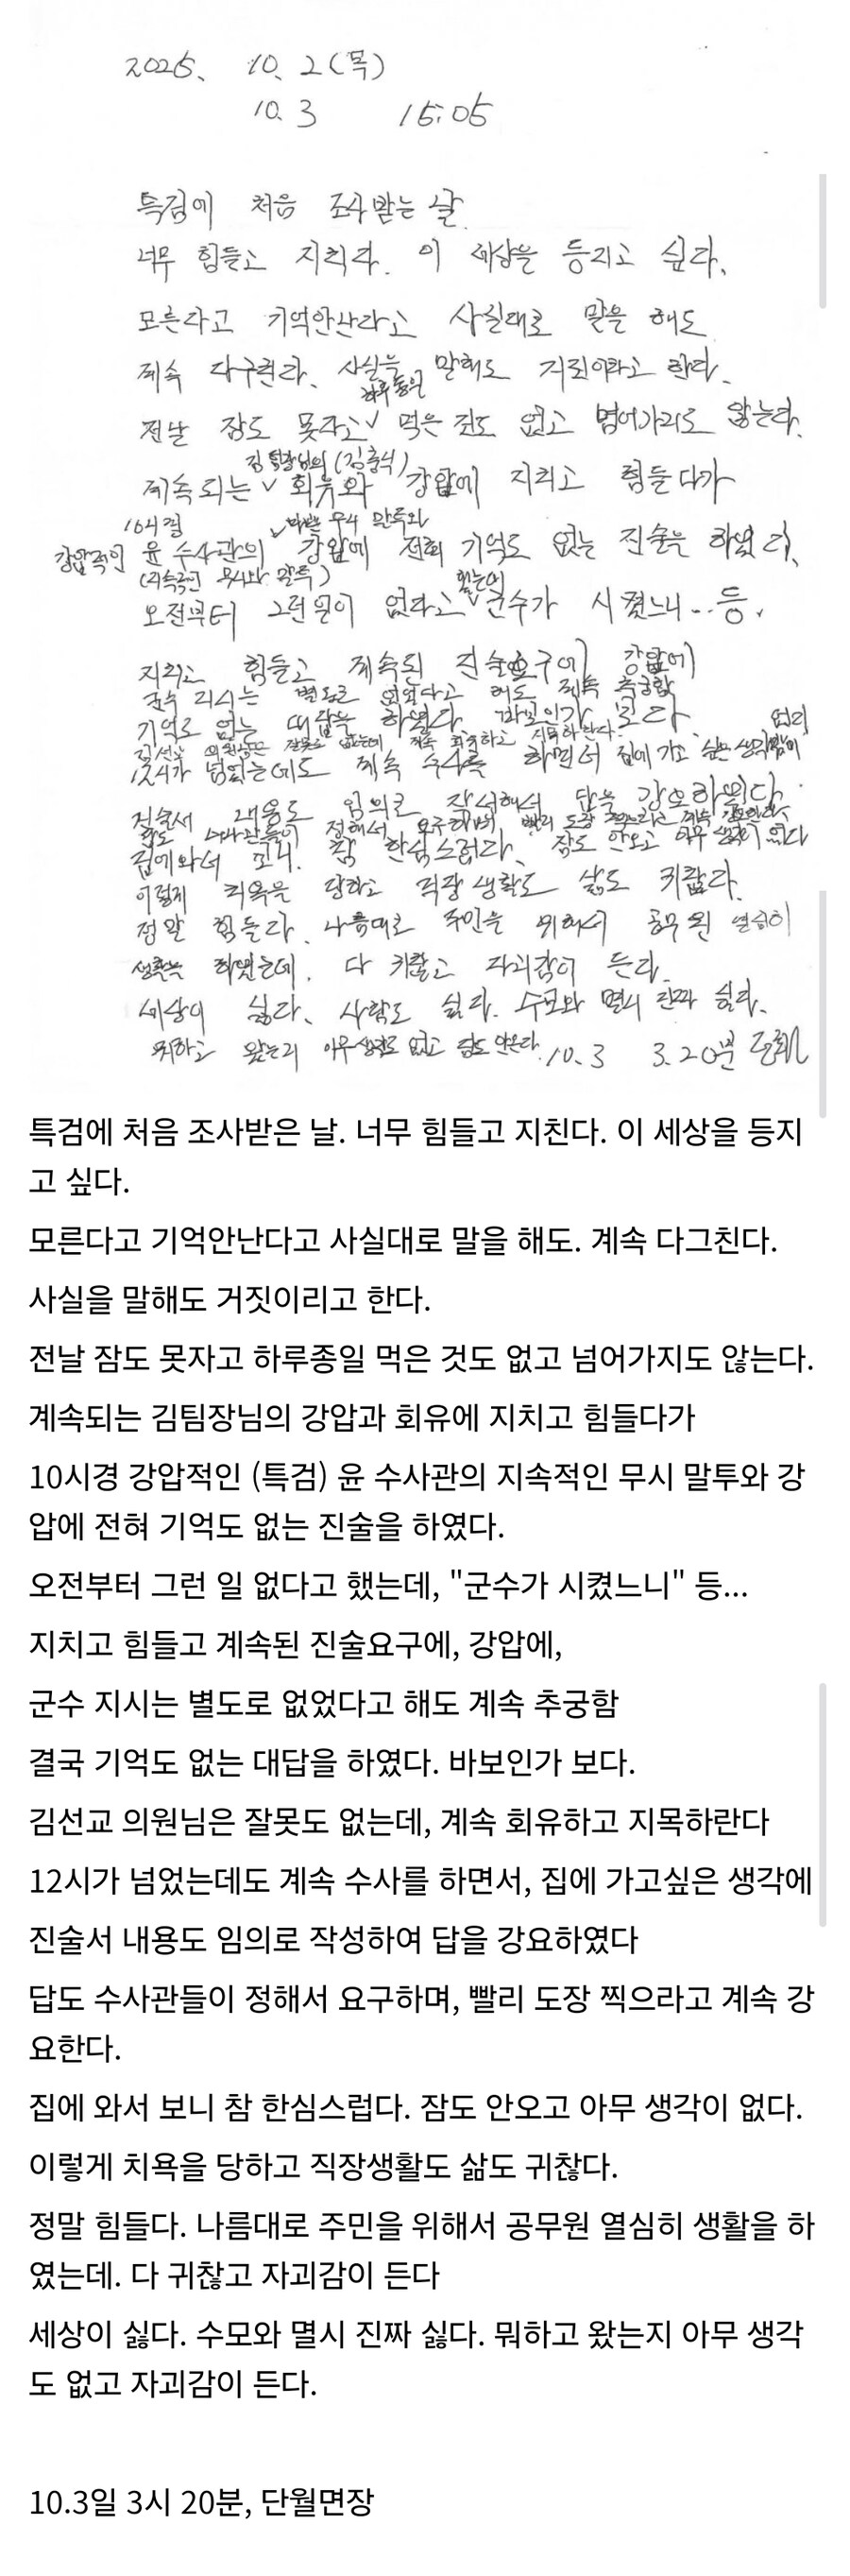 2025. 10. 2(목)
10. 3 15:05
특검에 처음 조사받는 날.
너무 힘들고 지친다. 이 세상을 등지고 싶다.
모른다고 기억안난다고 사실대로 말을 해도
계속 다구친다. 사실을 말해도 거짓이라고 한다.
하루종일
전날 잠도 못자고 ∨ 먹은 것도 없고 넘어가지도 않는다.
김 팀장님의 (김춘식)
계속되는 ∨ 회유와 강압에 지치고 힘들다가
10시경
강압적인 윤 수사관의 강압에 전혀 기억도 없는 진술을 하였다.
했는데
오전부터 그런일이 없다고 ∨ 군수가 시켰느니... 등.
지치고 힘들고 계속된 진술요구에 강압에
군수 지시는 별도로 없었다고 해도 계속 추궁함
기억도 없는 대답을 하였다. 바보인가 보다.
김선교 의원님은 잘못도 없는데 계속 회유하고 지목하란다.
12시가 넘었는데도 계속 수사를 하면서 집에 가고 싶은 생각
진술서 내용도 임의로 작성해서 답을 강요하였다.
답도 수사관들이 정해서 요구하며 빨리 도장 찍으라고 계속 강요한다.
집에와서 보니. 참 한심스럽다. 잠도 안오고 아무 생각이 없다
이렇게 치욕을 당하고 직장생활도 삶도 귀찮다.
정말 힘들다. 나름대로 주민을 위해서 공무원 열심히
생활을 하였는데. 다 귀찮고 자괴감이 든다.
세상이 싫다. 사람도 싫다. 수모와 멸시 진짜 싫다.
뭐하고 왔는지 아무생각도 없고 잠도 안온다. 10. 3 3.20분
특검에 처음 조사받은 날. 너무 힘들고 지친다. 이 세상을 등지
고 싶다.
모른다고 기억안난다고 사실대로 말을 해도. 계속 다그친다.
사실을 말해도 거짓이리고 한다.
전날 잠도 못자고 하루종일 먹은 것도 없고 넘어가지도 않는다.
계속되는 김팀장님의 강압과 회유에 지치고 힘들다가
10시경 강압적인 (특검) 윤 수사관의 지속적인 무시 말투와 강
압에 전혀 기억도 없는 진술을 하였다.
오전부터 그런 일 없다고 했는데, "군수가 시켰느니" 등...
지치고 힘들고 계속된 진술요구에, 강압에,
군수 지시는 별도로 없었다고 해도 계속 추궁함
결국 기억도 없는 대답을 하였다. 바보인가 보다.
김선교 의원님은 잘못도 없는데, 계속 회유하고 지목하란다
12시가 넘었는데도 계속 수사를 하면서, 집에 가고싶은 생각에
진술서 내용도 임의로 작성하여 답을 강요하였다
답도 수사관들이 정해서 요구하며, 빨리 도장 찍으라고 계속 강
요한다.
집에 와서 보니 참 한심스럽다. 잠도 안오고 아무 생각이 없다.
이렇게 치욕을 당하고 직장생활도 삶도 귀찮다.
정말 힘들다. 나름대로 주민을 위해서 공무원 열심히 생활을 하
였는데. 다 귀찮고 자괴감이 든다
세상이 싫다. 수모와 멸시 진짜 싫다. 뭐하고 왔는지 아무 생각
도 없고 자괴감이 든다.
10.3일 3시 20분, 단월면장